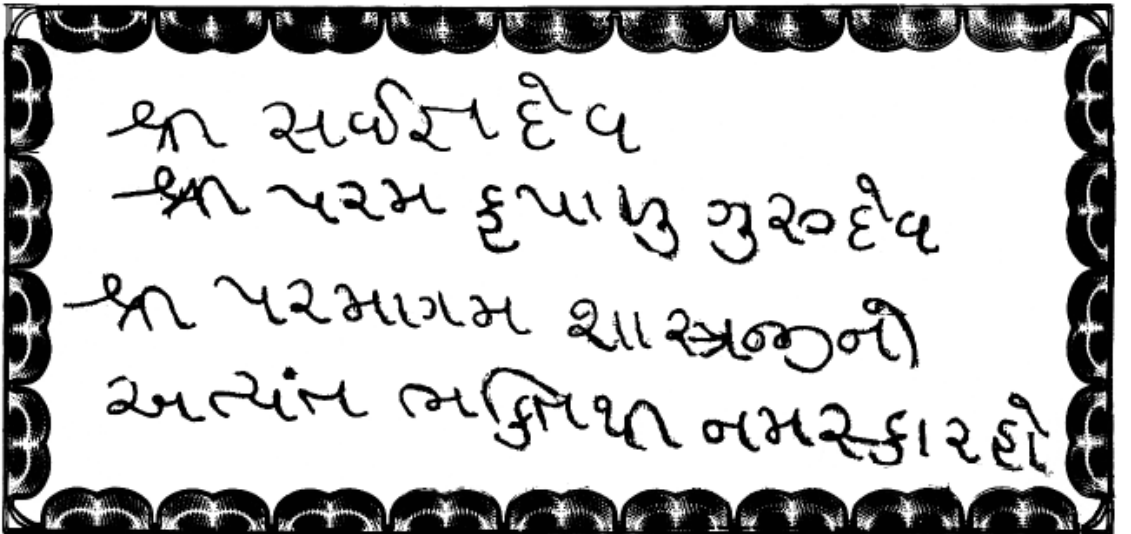 શ્રી સર્વજ્ઞ દેવ
શ્રી પરમ કૃપાળુ ગુરુદેવ
શ્રી પરમાગમ શાસ્ત્રજીનો
અત્યંત ભક્તિથી નમસ્કાર હો